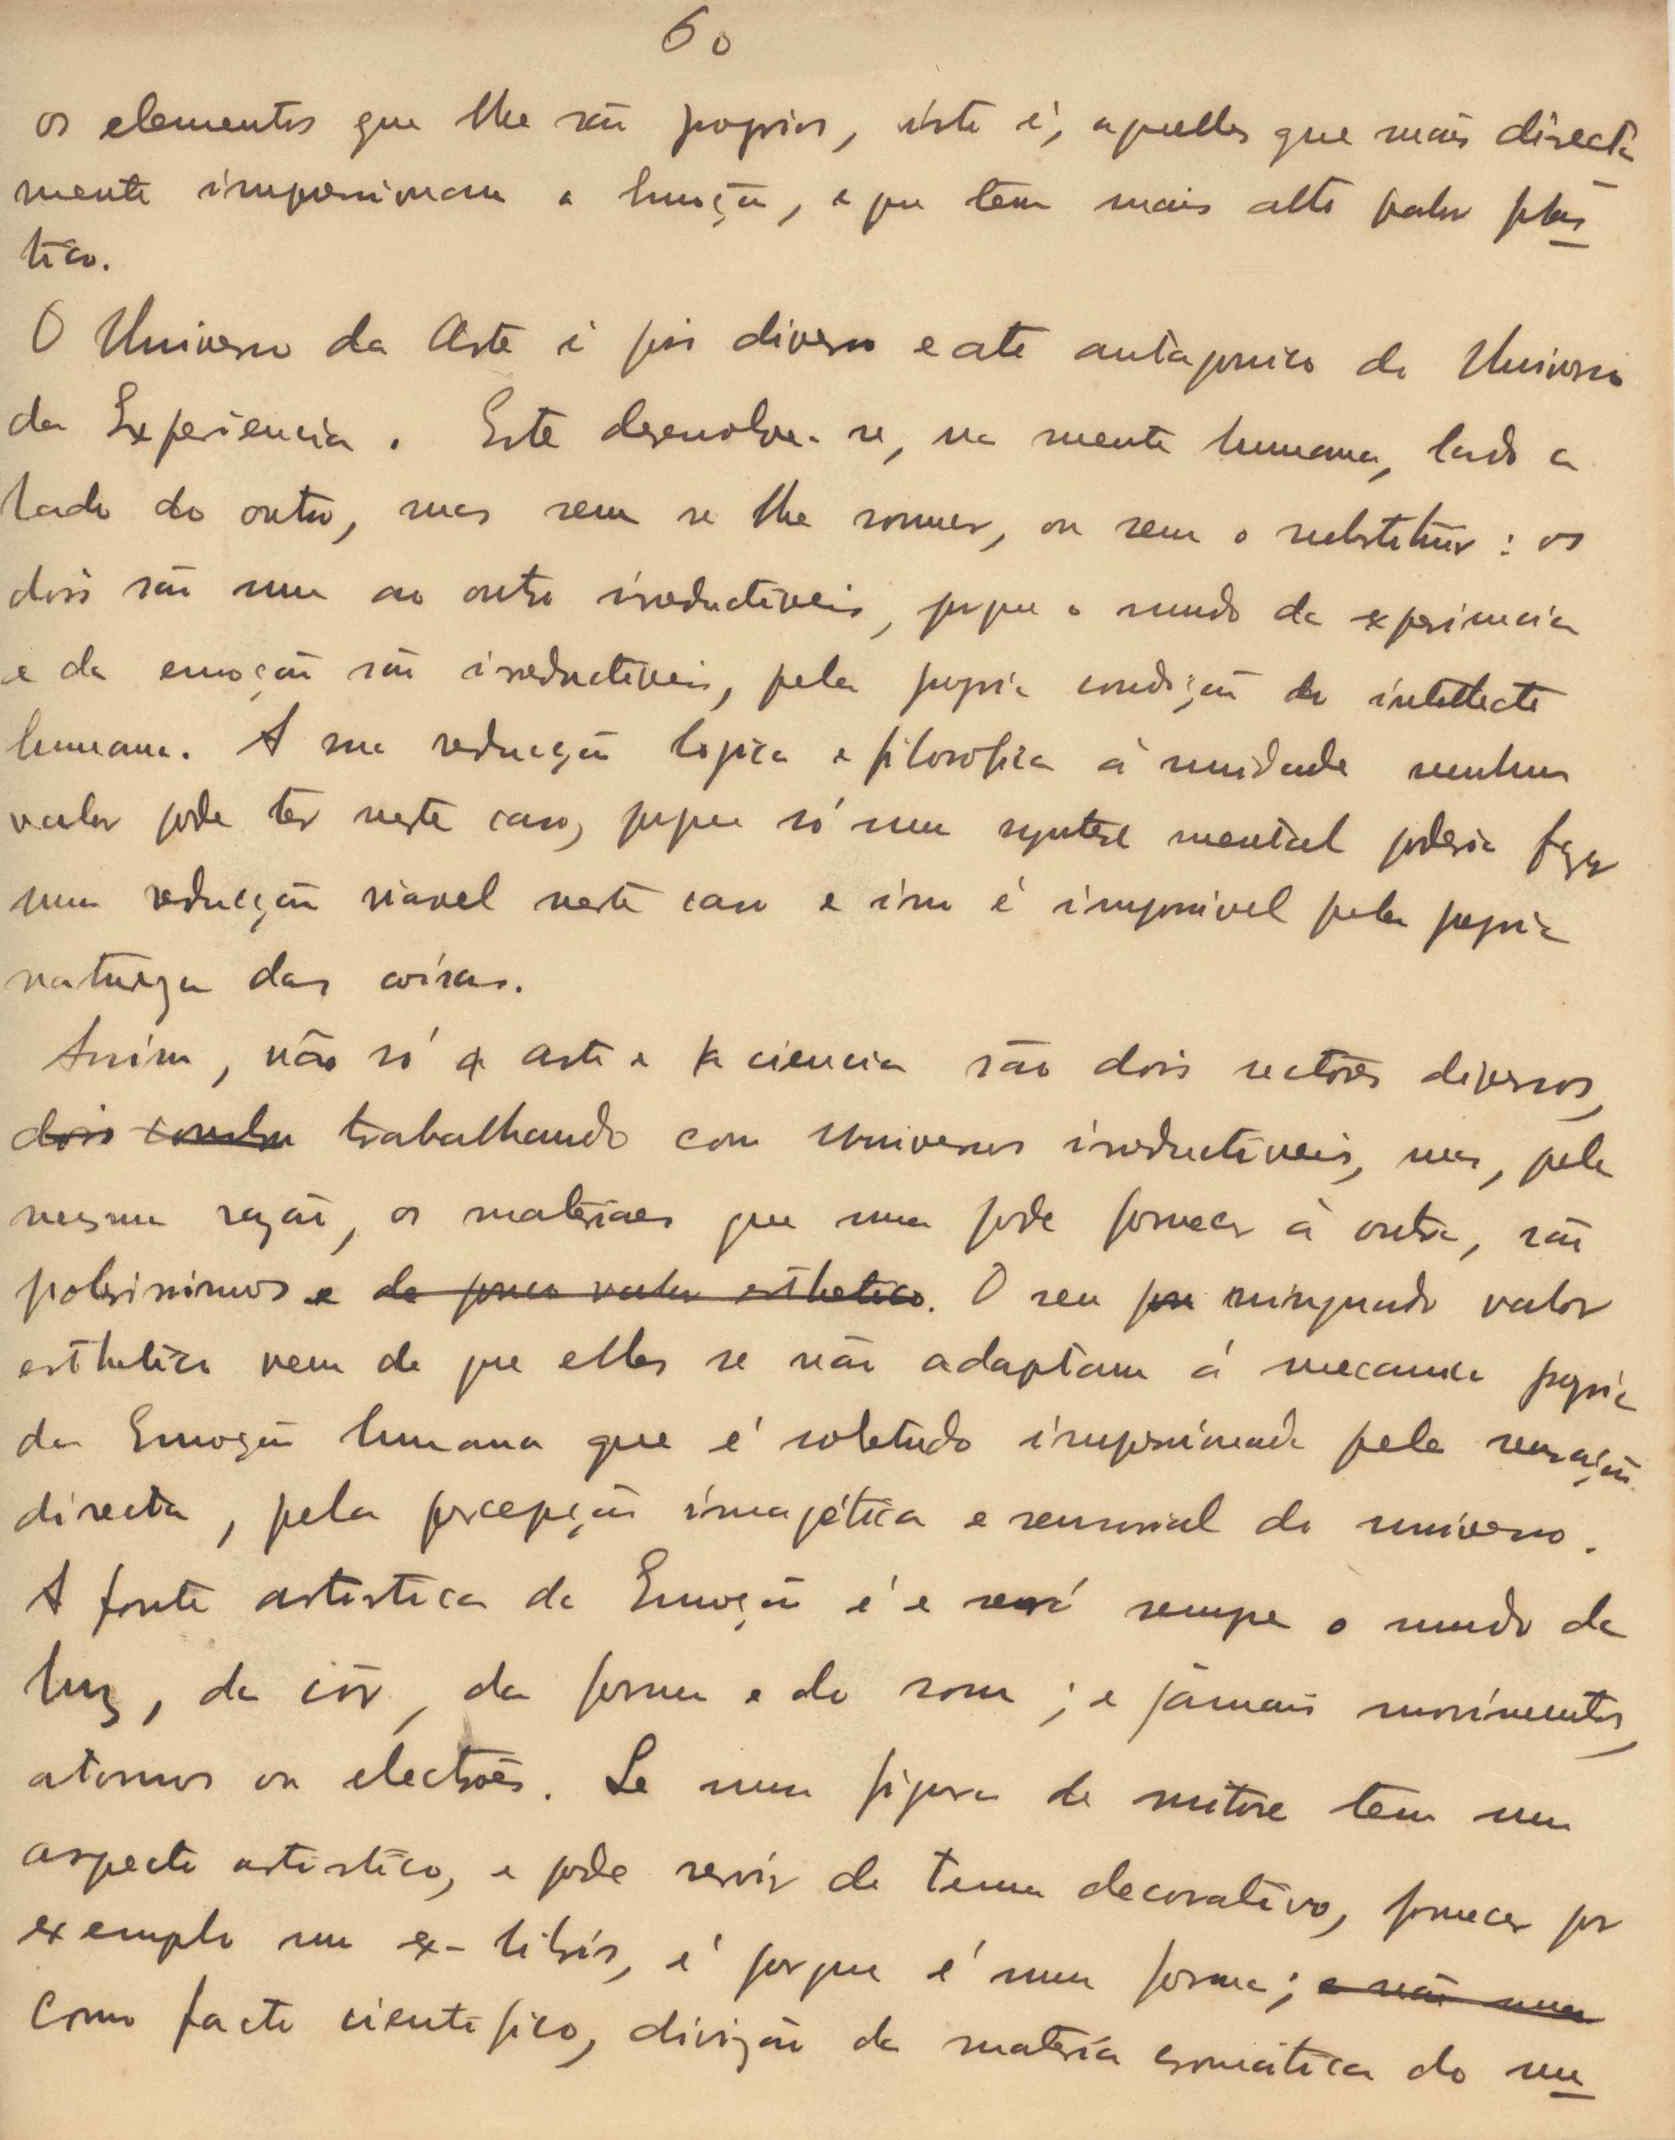 60
os elementos que lhe são proprios, isto é, aquelles que mais directa
mente impressionam a Emoção, e que tem mais alto valor plas
tico.
O Universo da Arte é pois diverso e até antagonico do Universo
da Experiencia. Este desenvolve-se, na mente humana, lado a
lado do outro, mas sem se lhe sommar, ou sem o substituir: os
dois são um ao outro irreductiveis, porque o mundo da experiencia
e da emoção são irreductiveis, pela propria condição do intellecto
humano. A sua reducção logica e filosofica á unidade nenhum
valor pode ter neste caso, porque só uma syntese mental poderia fazer
uma reducção viavel neste caso e isso é impossivel pela propria
natureza das coisas.
Assim, não só a arte e a ciencia são dois sectores diversos,
dois trabalhando com Universos irreductiveis, mas, pela
mesma razão, os materiaes que uma pode fornecer á outra, são
pobrissimos e de pouco valor esthetico. O seu minguado valor
esthetico vem de que elles se não adaptam á mecanica propria
da Emoção humana que é sobretudo impressionada pela sensação
directa, pela percepção imagética e sensorial do universo.
A fonte artistica da Emoção é e será sempre o mundo da
luz, da côr, da forma e do som; e jámais movimentos,
atomos ou electrões. Se uma figura de mitose tem um
aspecto artistico, e pode servir de tema decorativo, fornecer por
exemplo um ex-libris, é porque é uma forma; e não uma
Como facto cientifico, divizão da materia cromática do nu